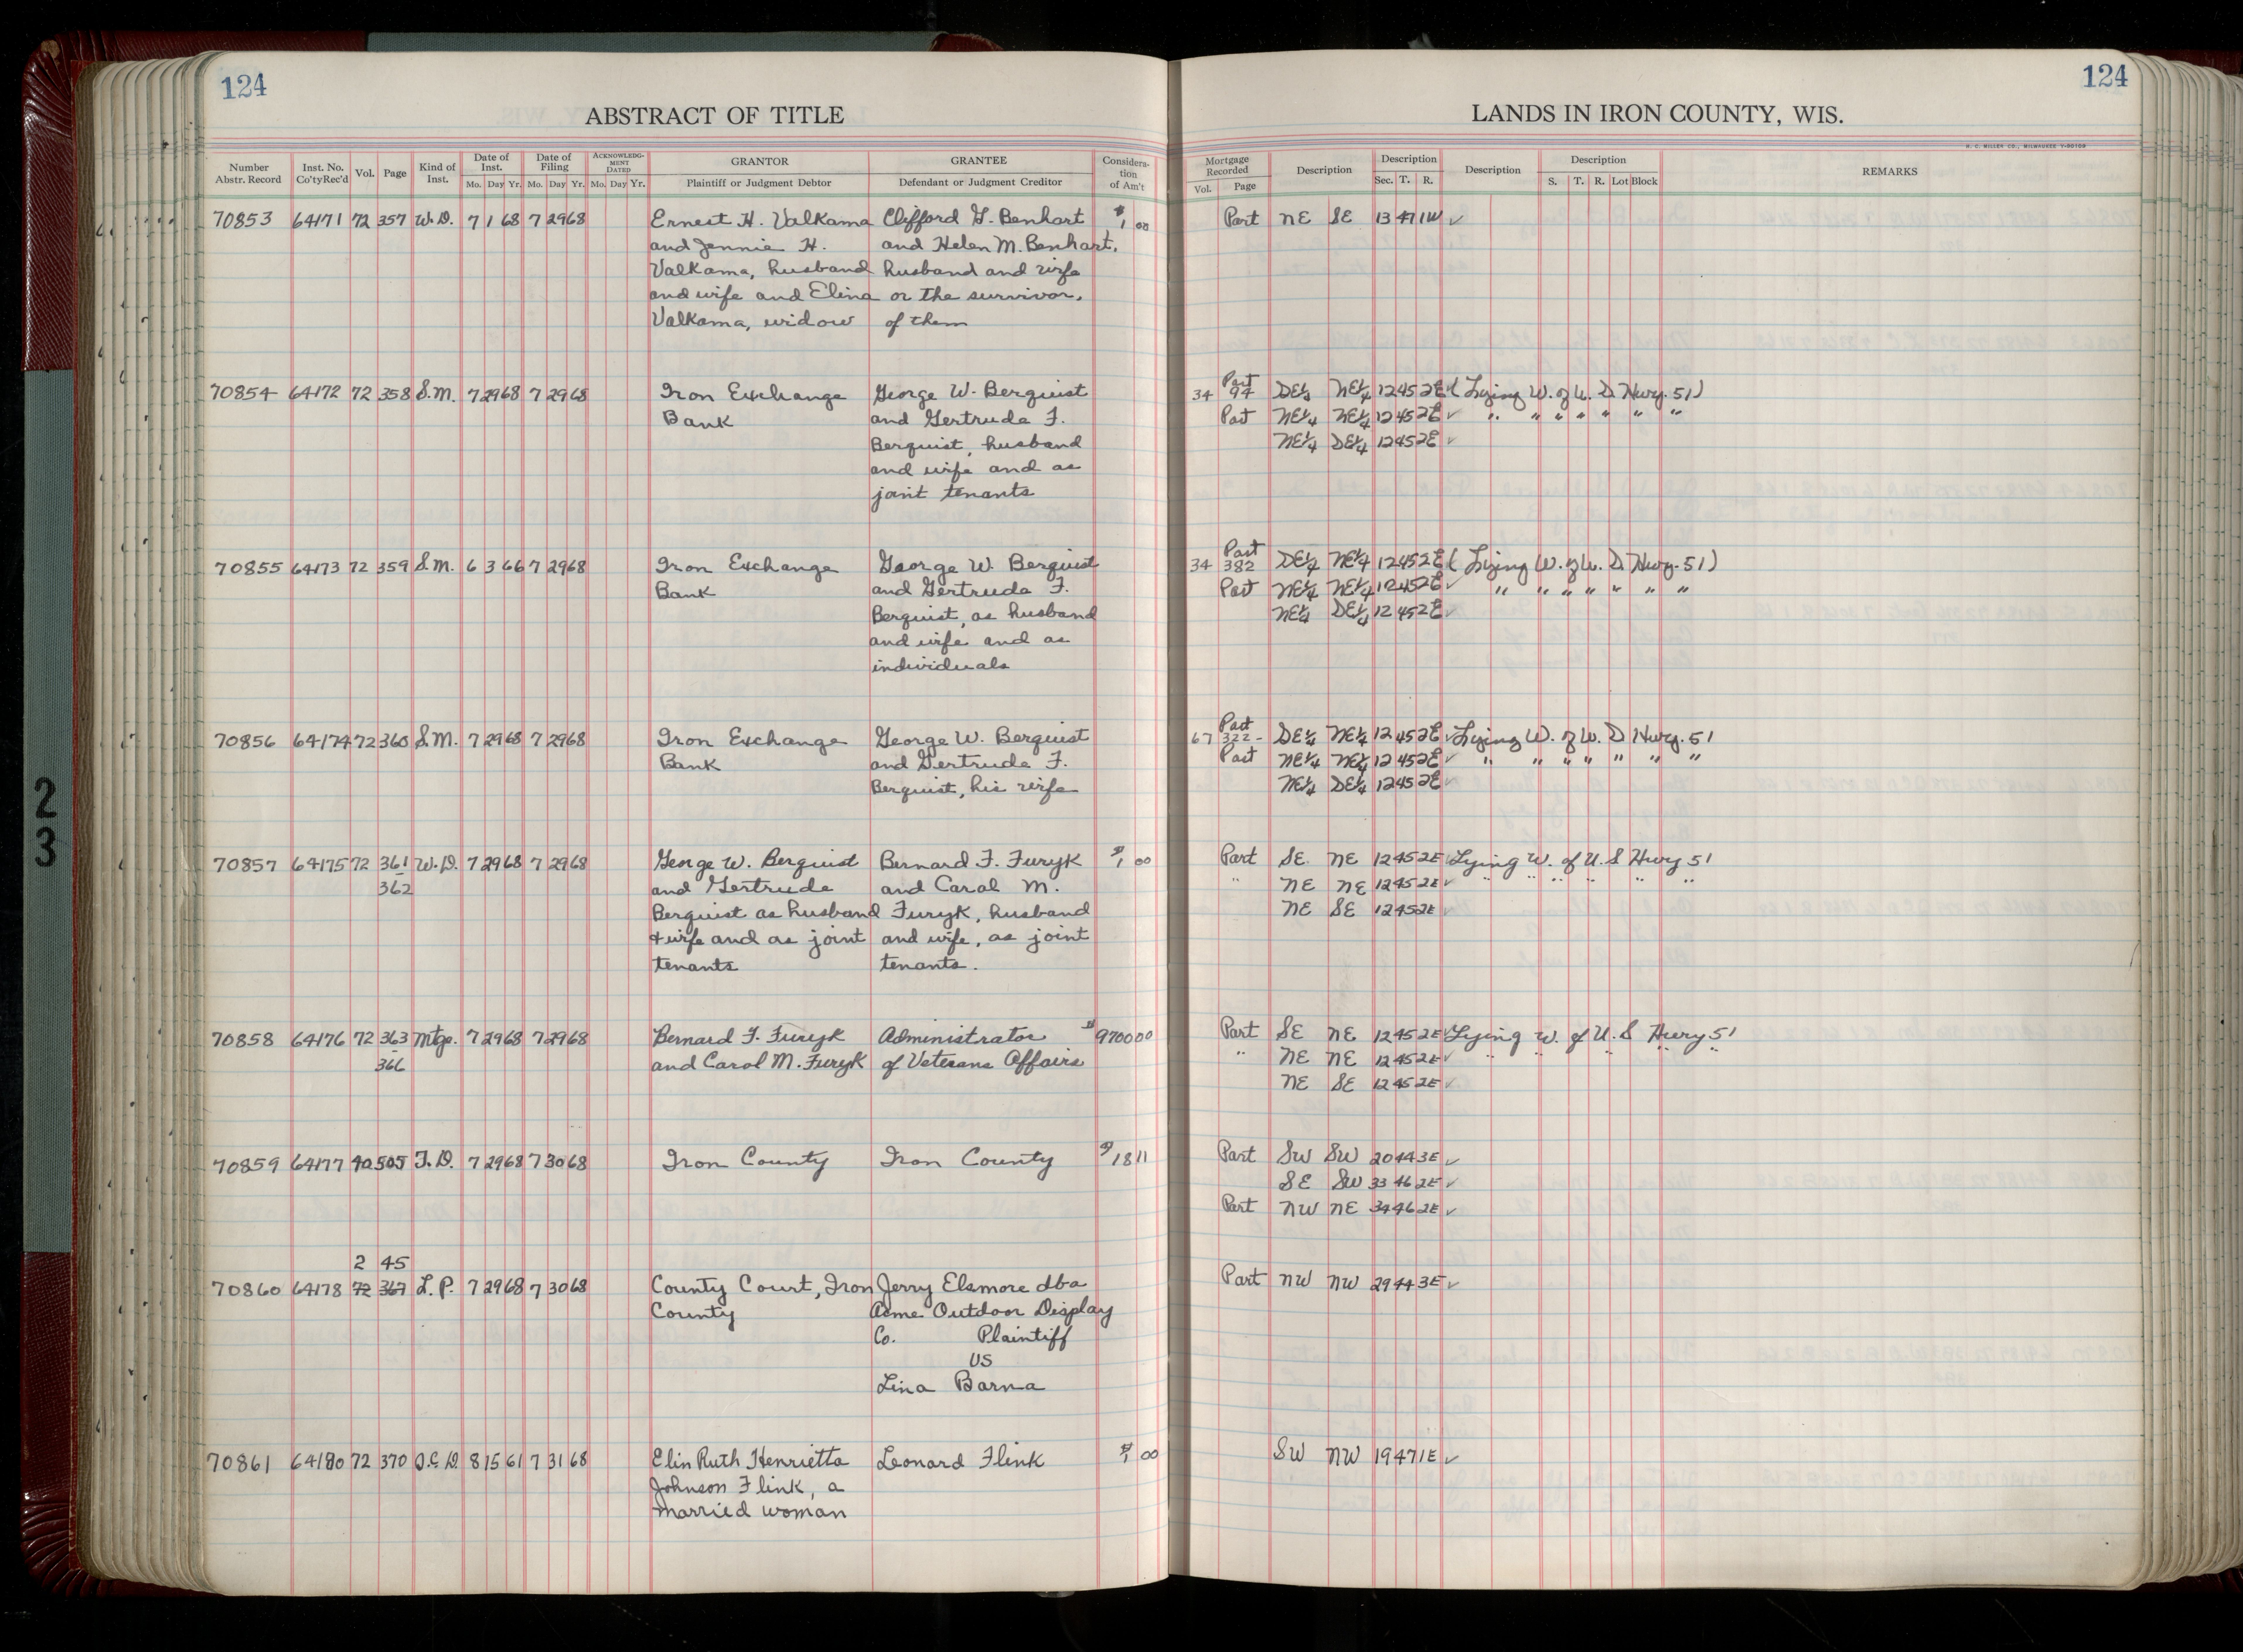 124
124
ABSTRACT OF TITLE
LANDS IN IRON COUNTY, WIS.
H. C. MILLER CO., MILWAUKEE
Number Abstr. Record | Inst. No. Co'ty Rec'd | Vol. | Page | Kind of Inst. | Date of Inst. Mo. Day Yr. | Date of Filing Mo. Day Yr. | ACKNOWLEDGMENT DATED Mo. Day Yr. | GRANTOR Plaintiff or Judgment Debtor | GRANTEE Defendant or Judgment Creditor | Consideration of Am't | Mortgage Recorded Vol. Page | Description | Description Sec. T. R. | Description | Description S. T. R. Lot Block | REMARKS
70853 64171 72 357 W.D. 7 1 68 7 29 68 Ernest H. Valkama Clifford G. Benhart $1 00 Part NE SE 13 47 1W ✓
and Jennie H. and Helen M. Benhart,
Valkama, husband husband and wife
and wife and Elina or the survivor,
Valkama, widow of them
70854 64172 72 358 S.M. 7 29 68 7 29 68 Iron Exchange George W. Berquist 34 Part 94 DE¼ NE¼ 12 45 2E ✓ (Lying W. of U. D Hwy. 51)
Bank and Gertrude F. Part NE¼ NE¼ 12 45 2E ✓ " " " " " " "
Berquist, husband NE¼ DE¼ 12 45 2E ✓
and wife and as
joint tenants
70855 64173 72 359 S.M. 6 3 66 7 29 68 Iron Exchange George W. Berquist 34 Part 382 DE¼ NE¼ 12 45 2E (Lying W. of U. D Hwy. 51)
Bank and Gertrude F. Part NE¼ NE¼ 12 45 2E ✓ " " " " " " "
Berquist, as husband NE¼ DE¼ 12 45 2E ✓
and wife and as
individuals
70856 64174 72 360 S.M. 7 29 68 7 29 68 Iron Exchange George W. Berquist 67 Part 322 - DE¼ NE¼ 12 45 2E ✓ Lying W. of U. D Hwy. 51
Bank and Gertrude F. Part NE¼ NE¼ 12 45 2E ✓ " " " " " " "
Berquist, his wife NE¼ DE¼ 12 45 2E ✓
70857 64175 72 361 W.D. 7 29 68 7 29 68 George W. Berquist Bernard F. Furyk $1 00 Part SE NE 12 45 2E Lying W. of U. S Hwy 51
362 and Gertrude and Carol M. " NE NE 12 45 2E ✓ " " " " " "
Berquist as husband Furyk, husband NE SE 12 45 2E ✓
& wife and as joint and wife, as joint
tenants tenants.
70858 64176 72 363 Mtge. 7 29 68 7 29 68 Bernard F. Furyk Administrator $9700 00 Part SE NE 12 45 2E ✓ Lying W. of U. S Hwy 51
366 and Carol M. Furyk of Veterans Affairs " NE NE 12 45 2E ✓ " " " " " "
NE SE 12 45 2E ✓
70859 64177 40 505 T.D. 7 29 68 7 30 68 Iron County Iron County $18 11 Part SW SW 20 44 3E ✓
SE SW 33 46 2E ✓
Part NW NE 34 46 2E ✓
2 45
70860 64178 72 367 L.P. 7 29 68 7 30 68 County Court, Iron Jerry Elsmore dba Part NW NW 29 44 3E ✓
County Acme Outdoor Display
Co. Plaintiff
vs
Lina Barna
70861 64180 72 370 Q.C.D. 8 15 61 7 31 68 Elin Ruth Henrietta Leonard Flink $1 00 SW NW 19 47 1E ✓
Johnson Flink, a
married woman
2
3